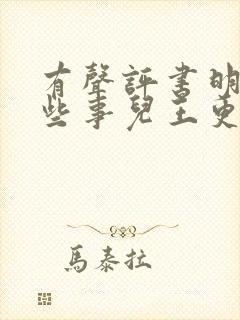 有聲評書明
些事兒王更
馬泰拉